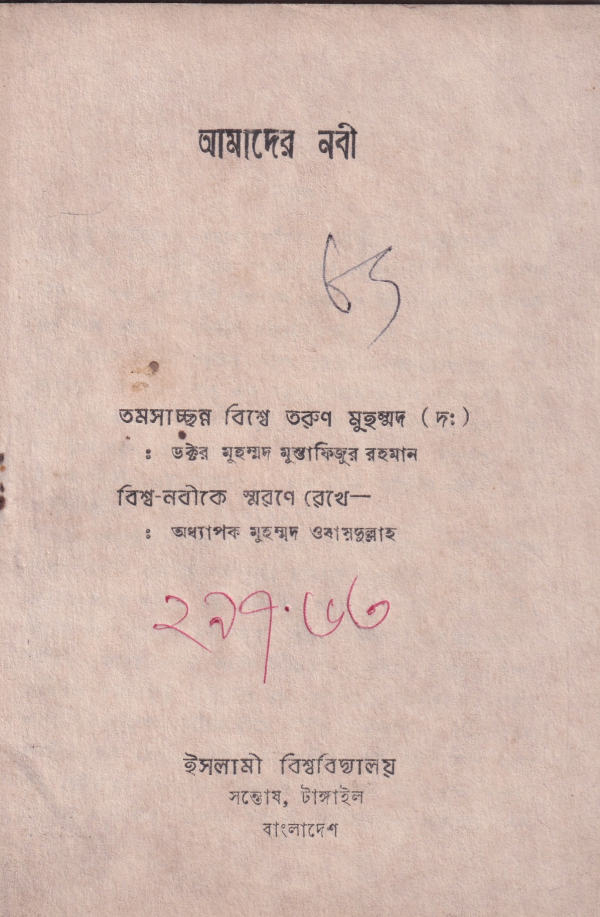 আমাদের নবী
তমসাচ্ছন্ন বিশ্বে তরুণ মুহম্মদ (দঃ)
: ডক্টর মুহম্মদ মুস্তাফিজুর রহমান
বিশ্ব-নবীকে স্মরণে রেখে—
: অধ্যাপক মুহম্মদ ওবায়দুল্লাহ
২৯৭.৬৩
ইসলামী বিশ্ববিদ্যালয়
সন্তোষ, টাঙ্গাইল
বাংলাদেশ